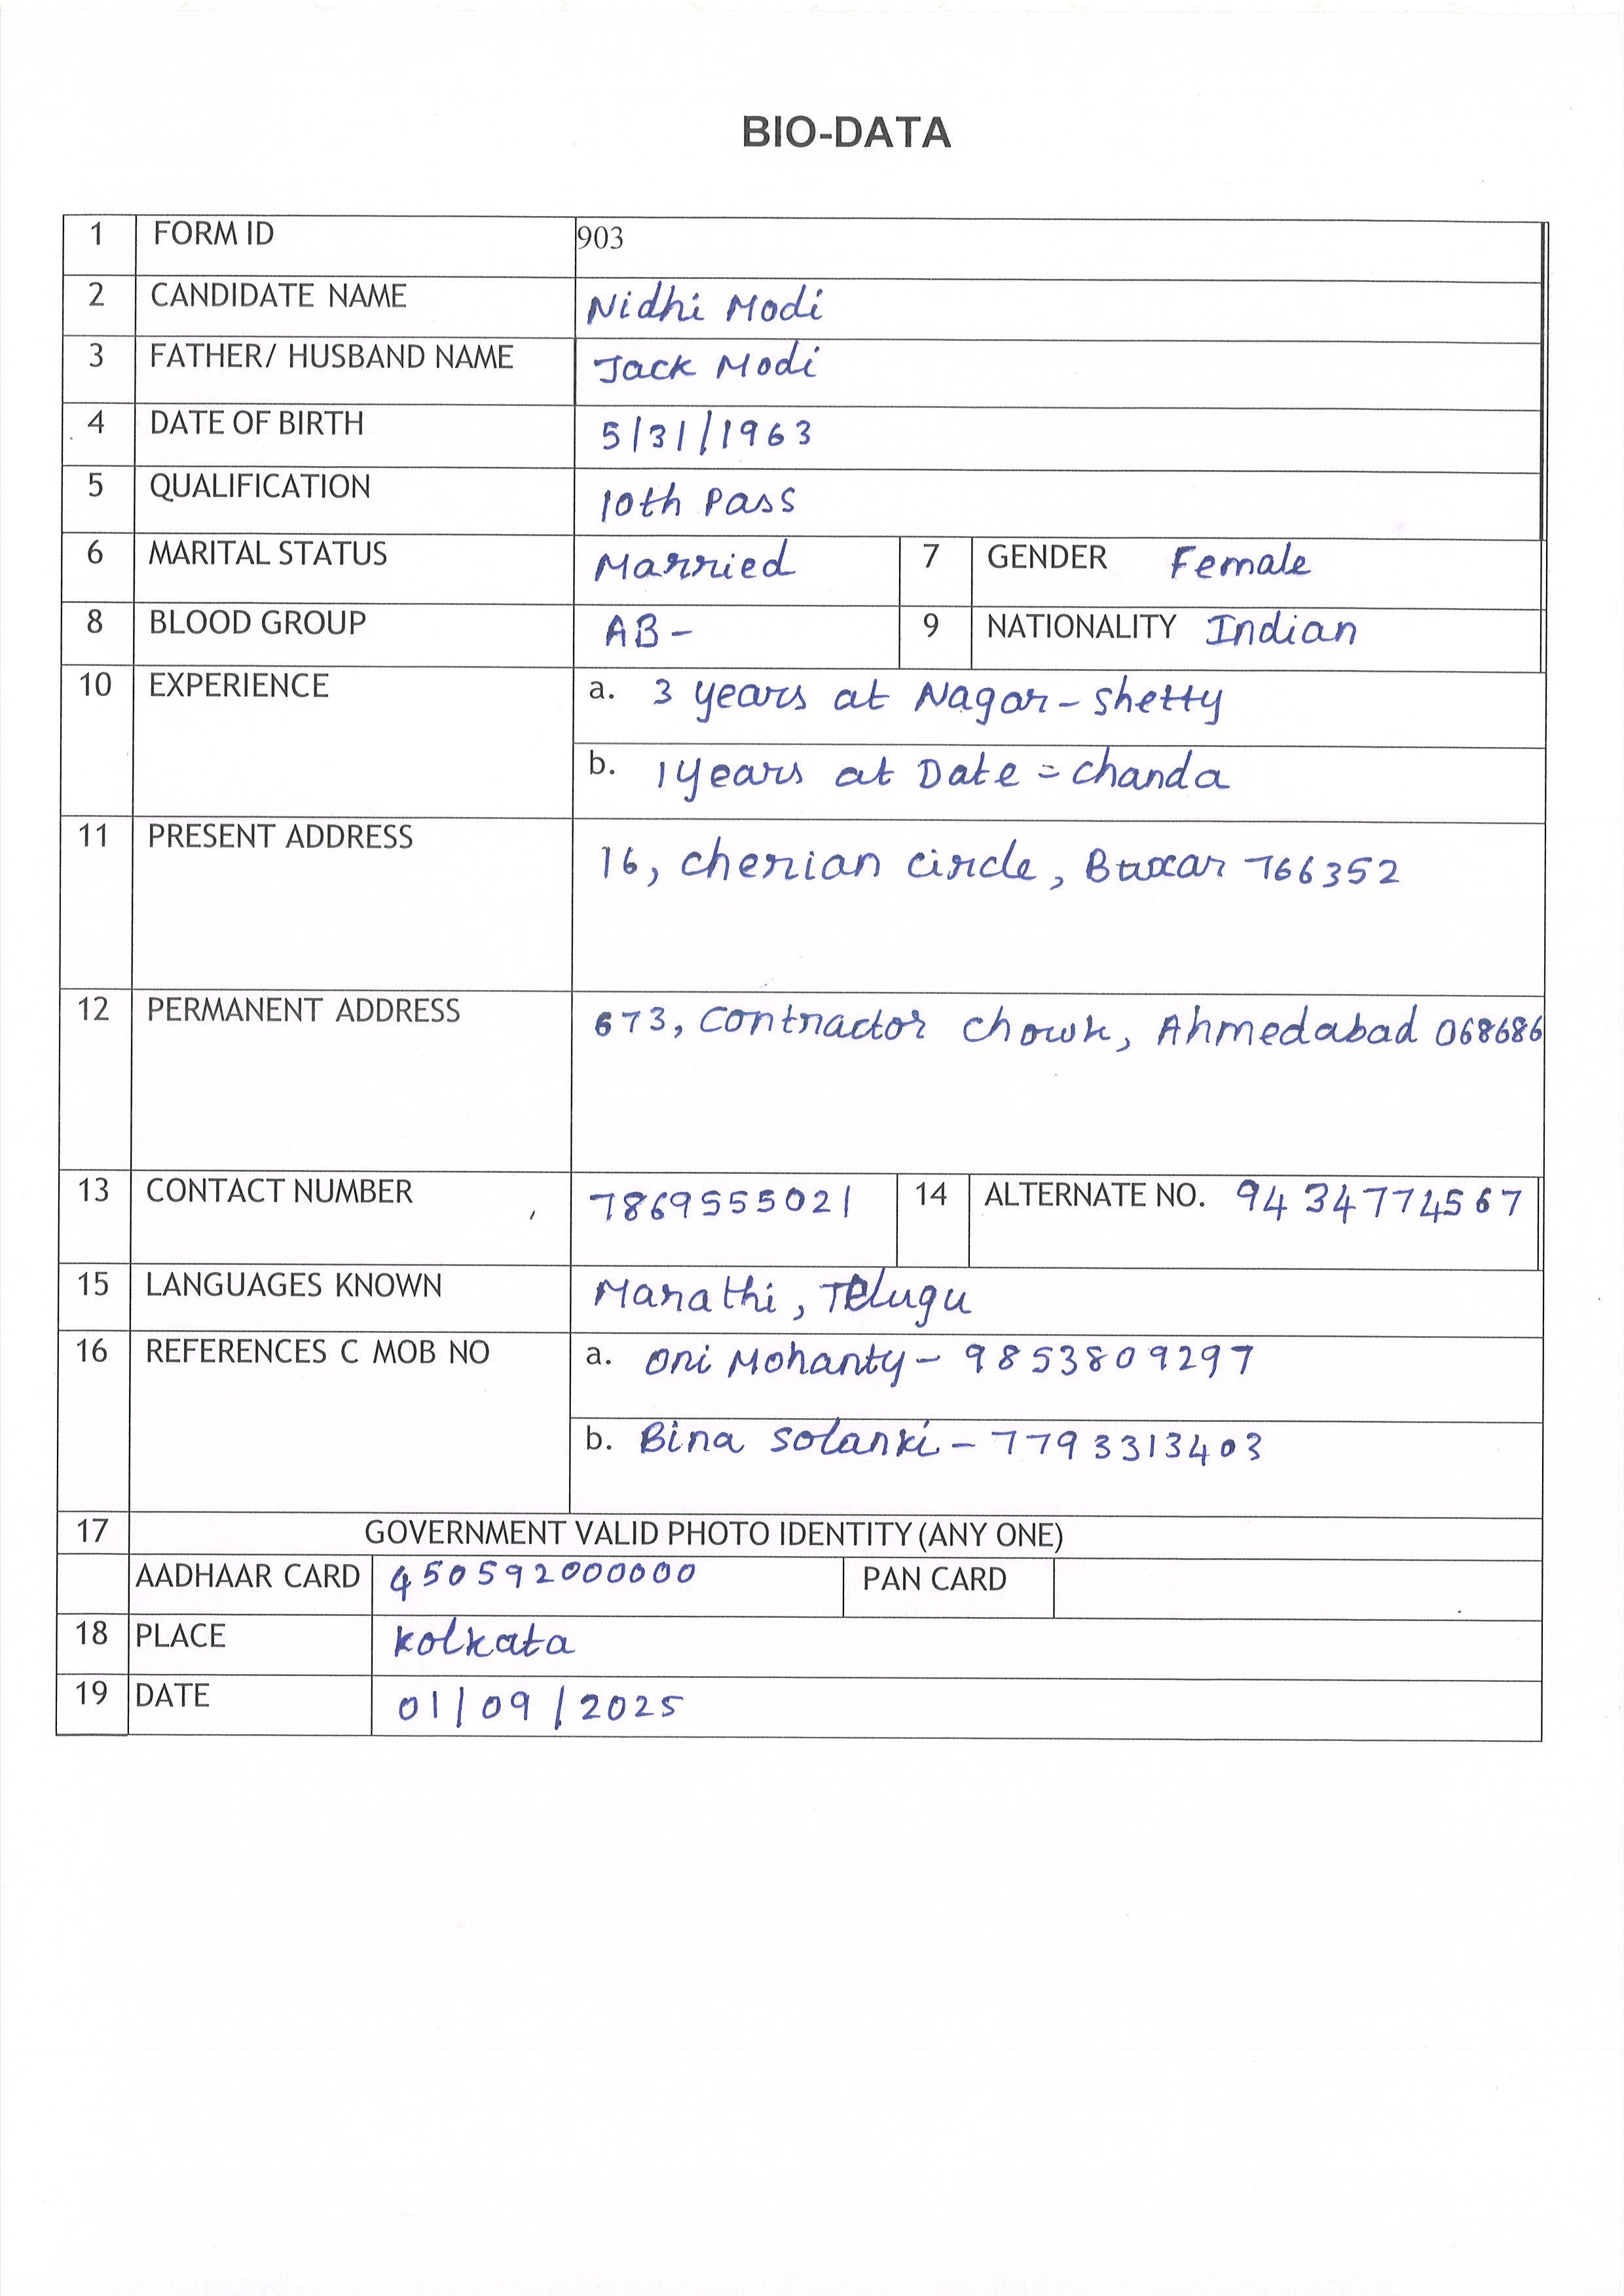 BIO-DATA
1 FORM ID 903
2 CANDIDATE NAME Nidhi Modi
3 FATHER/ HUSBAND NAME Jack Modi
4 DATE OF BIRTH 5/31/1963
5 QUALIFICATION 10th Pass
6 MARITAL STATUS Married 7 GENDER Female
8 BLOOD GROUP AB- 9 NATIONALITY Indian
10 EXPERIENCE a. 3 years at Nagar-Shetty
b. 1 years at Date = chanda
11 PRESENT ADDRESS 16, Cherian circle, Buxar 766352
12 PERMANENT ADDRESS 673, Contractor Chowk, Ahmedabad 068686
13 CONTACT NUMBER 7869555021 14 ALTERNATE NO. 9434774567
15 LANGUAGES KNOWN Marathi, Telugu
16 REFERENCES C MOB NO a. Oni Mohanty - 9853809297
b. Bina Solanki - 7793313403
17 GOVERNMENT VALID PHOTO IDENTITY (ANY ONE)
AADHAAR CARD 450592000000 PAN CARD
18 PLACE Kolkata
19 DATE 01/09/2025